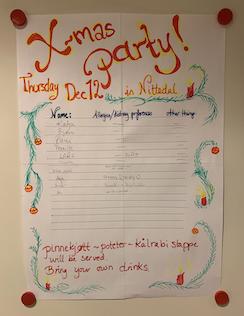 X-mas
Party!
Thursday Dec 12 in Nittedal
Name: Allergies/dietary preferences other things
Katja
pinnekjøtt ~ poteter ~ Kålrabi stappe
will be served.
Bring your own drinks.